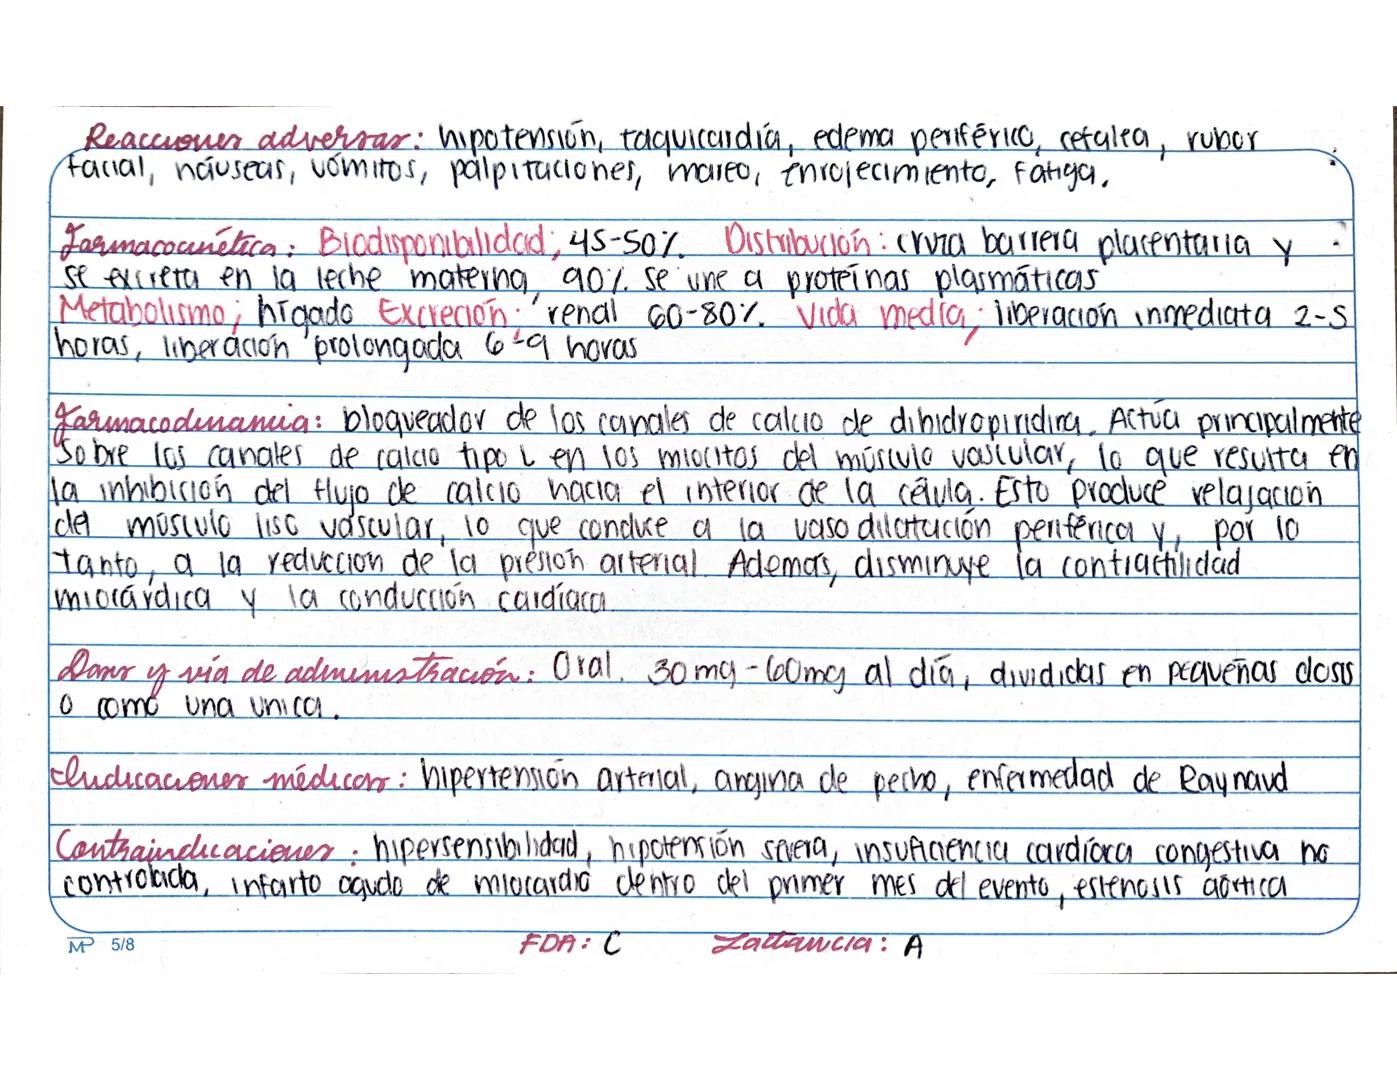 Reacciones adversas: hipotensión, taquicardia, edema periférico, cefalea, rubor
facial, náuseas, vómitos, palpitaciones, mareo, enrojecimiento, fatiga.
Farmacocinética: Biodisponibilidad; 45-50%. Distribución: cruza barrera placentaria y
se excreta en la leche materna, 90% se une a proteínas plasmáticas
Metabolismo; hígado Excreción; renal 60-80%. Vida media; liberación inmediata 2-5
horas, liberación prolongada 6-9 horas
Farmacodinamia: bloqueador de los canales de calcio de dihidropiridina. Actúa principalmente
sobre los canales de calcio tipo L en los miocitos del músculo vascular, lo que resulta en
la inhibición del flujo de calcio hacia el interior de la célula. Esto produce relajación
del músculo liso vascular, lo que conduce a la vasodilatación periférica y, por lo
tanto, a la reducción de la presión arterial. Además, disminuye la contractilidad
miocárdica y la conducción cardíaca
Dosis y vía de administración: Oral. 30mg-60mg al día, divididas en pequeñas dosis
o como una unica.
Indicaciones médicas: hipertensión arterial, angina de pecho, enfermedad de Raynaud
Contraindicaciones: hipersensibilidad, hipotensión severa, insuficiencia cardíaca congestiva no
controlada, infarto agudo de miocardio dentro del primer mes del evento, estenosis aórtica
MP 5/8 FDA: C Lactancia: A